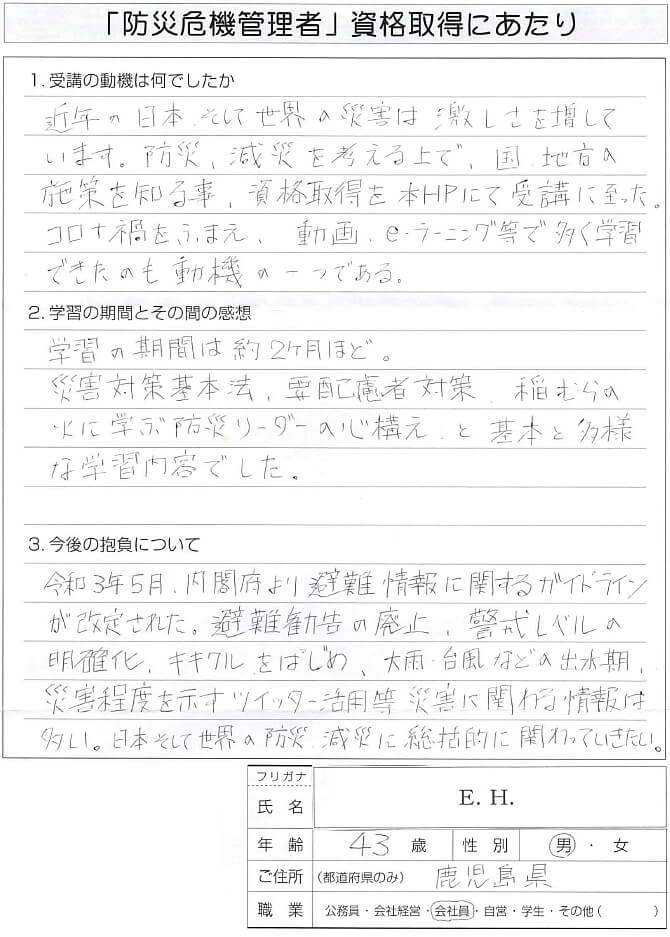 「防災危機管理者」資格取得にあたり
1. 受講の動機は何でしたか
近年の日本、そして世界の災害は激しさを増して
います。防災、減災を考える上で、国、地方の
施策を知る事、資格取得を本HPにて受講に至った。
コロナ禍をふまえ、動画、e-ラーニング等で多く学習
できたのも動機の一つである。
2. 学習の期間とその間の感想
学習の期間は約2ヶ月ほど。
災害対策基本法、要配慮者対策、稲むらの
火に学ぶ防災リーダーの心構え、と基本と多様
な学習内容でした。
3. 今後の抱負について
令和3年5月、内閣府より避難情報に関するガイドライン
が改定された。避難勧告の廃止、警戒レベルの
明確化、キキクルをはじめ、大雨・台風などの出水期、
災害程度を示すツイッター活用等災害に関わる情報は
多い。日本そして世界の防災、減災に総括的に関わっていきたい。
フリガナ
氏名 E. H.
年齢 43 歳 性別 男・女
ご住所 (都道府県のみ) 鹿児島県
職業 公務員・会社経営・会社員・自営・学生・その他( )